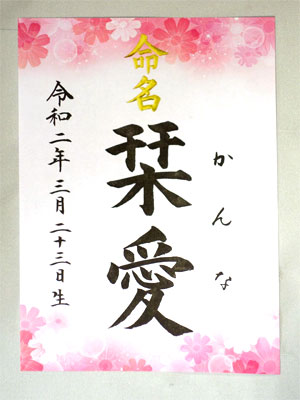 命名
かんな
栞愛
令和二年三月二十三日生